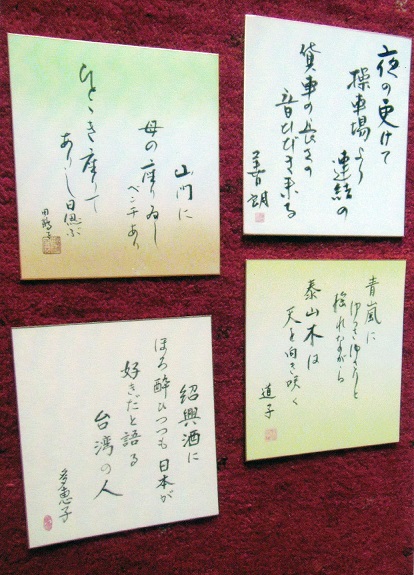 夜の更けて
操車場より
連結の
貨車の長きの
音ひびき来る
山門に
母の座りゐし
ベンチあり
ひととき座りて
ありし日思ふ
青嵐に
ゆさゆさゆさと
揺れながら
泰山木は
天を向き咲く
道子
紹興酒に
ほろ酔ひつつも日本が
好きだと語る
台湾の人
多恵子